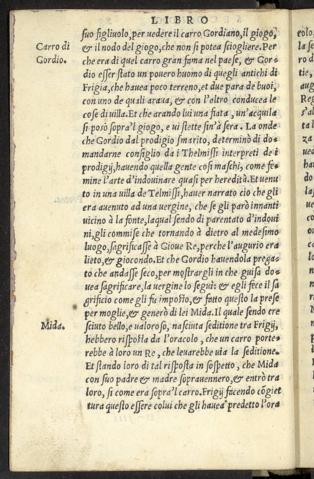 LIBRO
suo figliuolo, per uedere il carro Gordiano, il giogo,
Carro di
Gordio.
& il nodo del giogo, che non si potea sciogliere. Per
che era di quel carro gran fama nel paese, & Gor-
dio esser stato un pouero huomo di quegli antichi di
Frigia, che hauea poco terreno, et due para de buoi,
con uno de quali araua, & con l'altro conducea le
cose di uilla. Et che arando lui una fiata, un'acquila
si posò sopra'l giogo, e ui stette sin'à sera. La onde
che Gordio dal prodigio smarito, determinò di do-
mandarne consiglio da i Thelmissi interpreti de i
prodigij, hauendo quella gente cosi maschi, come fe-
mine l'arte d'indouinare quasi per heredità. Et uenu
to in una uilla de Telmissi, hauer narrato cio che gli
era auenuto ad una uergine, che se gli parò innanti
uicino à la fonte, laqual sendo di parentato d'indoui
ni, gli commise che tornando à dietro al medesimo
luogo, sagrificasse à Gioue Re, perche l'augurio era
lieto, & giocondo. Et che Gordio hauendola prega-
to che andasse seco, per mostrargli in che guisa do-
uea sagrificare, la uergine lo seguì: & egli fece il sa
grificio come gli fu imposto, & fatto questo la prese
per moglie, & generò di lei Mida. Il quale sendo cre
Mida.
sciuto bello, e ualoroso, nasciuta seditione tra Frigij,
hebbero risposta da l'oracolo, che un carro porte-
rebbe à loro un Re, che leuarebbe uia la seditione.
Et stando loro di tal risposta in sospetto, che Mida
con suo padre & madre soprauennero, & entrò tra
loro, si come era sopra'l carro. Frigij facendo cōgiet
tura questo essere colui che gli hauea predetto l'ora